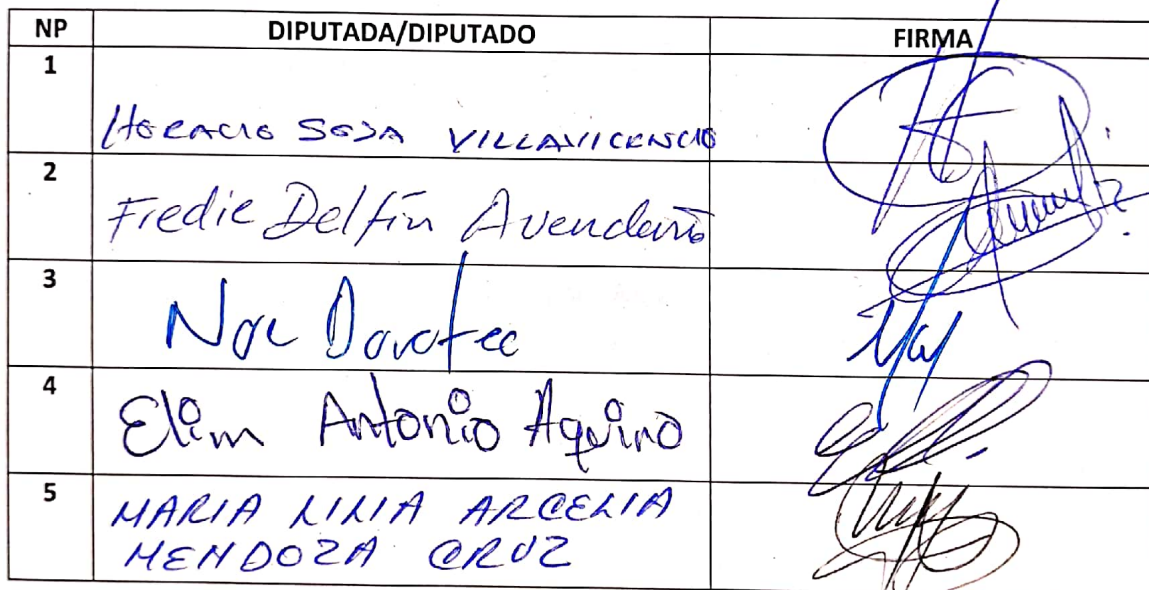 NP DIPUTADA/DIPUTADO FIRMA
1 HORACIO SOSA VILLAVICENCIO
2 Fredie Delfín Avendaño
3 Noe Doroteo
4 Elim Antonio Aquino
5 MARIA LILIA ARCELIA
MENDOZA CRUZ